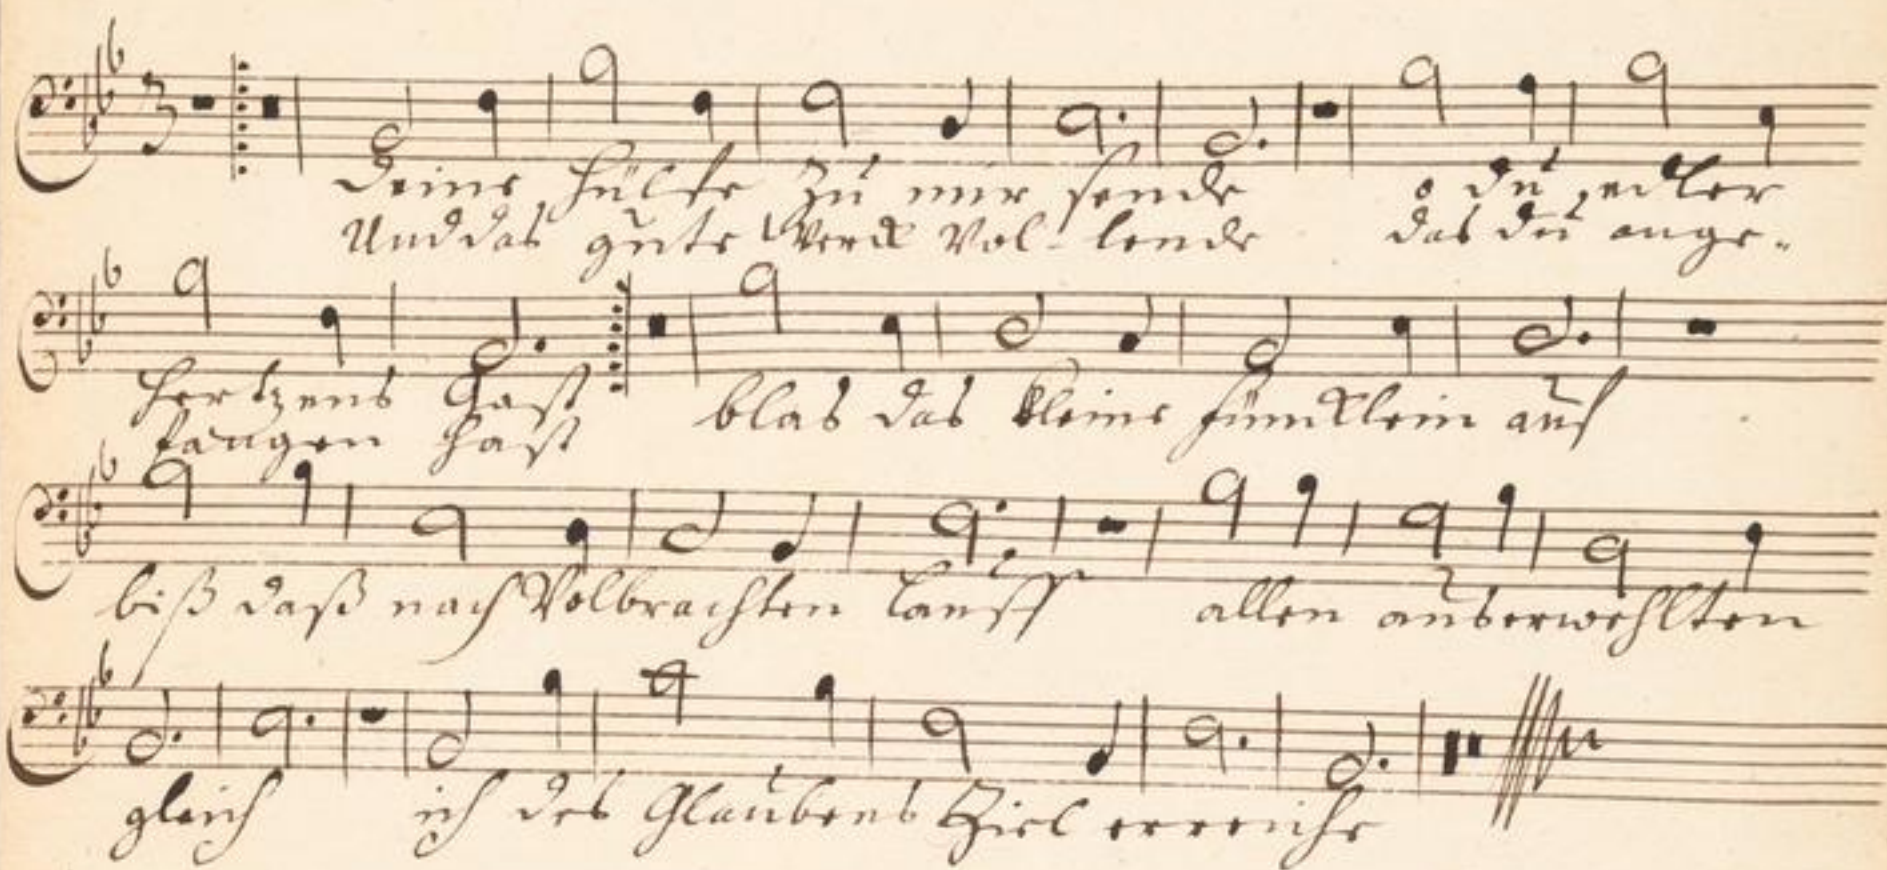 Deine hülfe zu mir sende o du edler
Und das gute Werck Vol- lende das du ange-
hertzens Gast blas das kleine fünklein auf
fangen hast
biß daß nach Volbrachten lauff allen außerwehlten
gleich ich des Glaubens Ziel erreiche